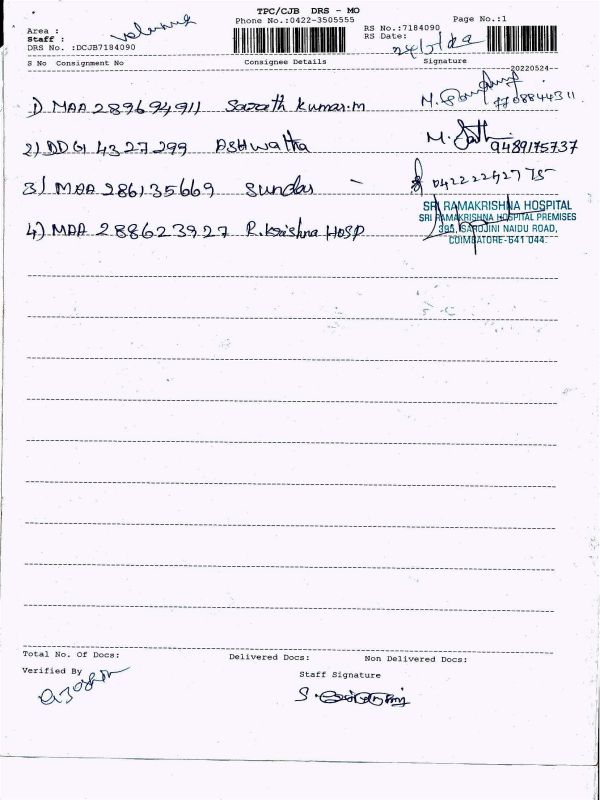 TPC/CJB DRS - MO
Phone No.:0422-3505555 Page No.:1
Area :
RS No.:7184090
Staff :
RS Date:
DRS No. :DCJB7184090
S No Consignment No Consignee Details Signature
20220524
1) MAA 289694911 Sarath Kumar.m 7708844311
2) DDG1 4327299 AShwatha 9489175737
3) MAA 286135669 Sundar
4) MAA 288623927 R.Krishna HOSP
SRI RAMAKRISHNA HOSPITAL
SRI RAMAKRISHNA HOSPITAL PREMISES
395, SAROJINI NAIDU ROAD,
COIMBATORE-641 044.
Total No. Of Docs: Delivered Docs: Non Delivered Docs:
Verified By Staff Signature